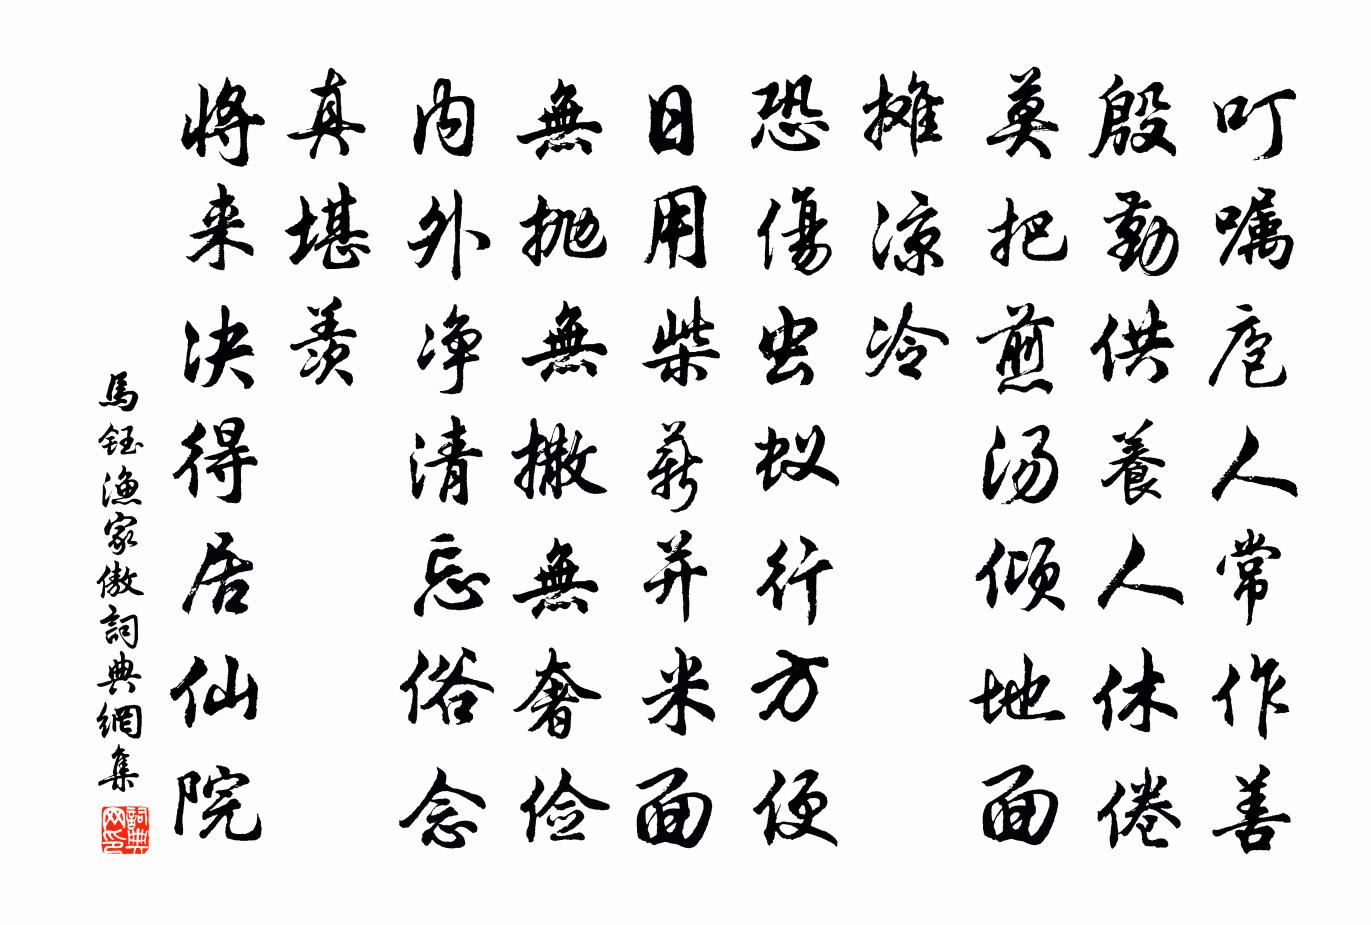 叮嘱庖人常作善
殷勤供養人休倦
莫把煎汤倾地面
摊凉冷
恐傷虫蚁行方便
日用柴薪并米面
無抛無撒無奢俭
内外净清忘俗念
真堪羨
将来决得居仙院
馬鈺漁家傲詞典網集
詞典网印